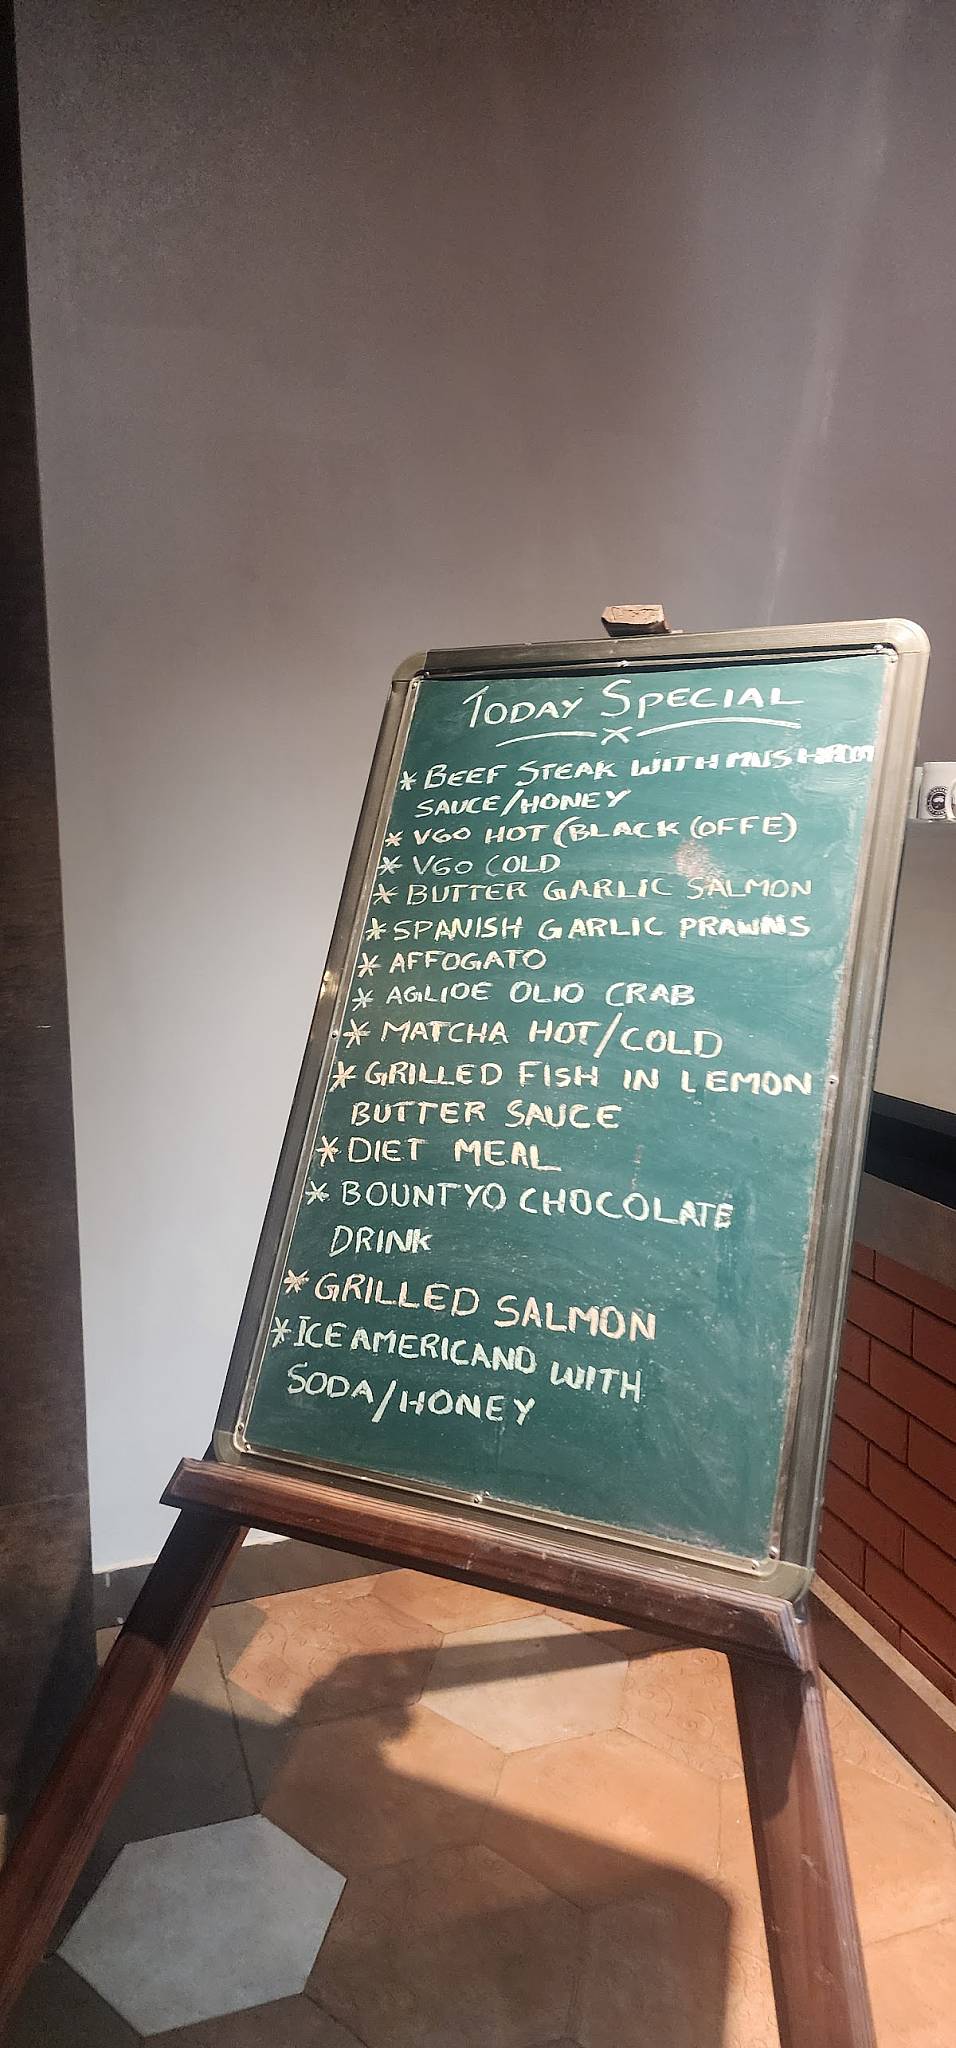 TODAY SPECIAL
x
* BEEF STEAK WITH MUSHROOM
SAUCE/HONEY
* V60 HOT (BLACK COFFE)
* V60 COLD
* BUTTER GARLIC SALMON
* SPANISH GARLIC PRAWNS
* AFFOGATO
* AGLIOE OLIO CRAB
* MATCHA HOT/COLD
* GRILLED FISH IN LEMON
BUTTER SAUCE
* DIET MEAL
* BOUNTYO CHOCOLATE
DRINK
* GRILLED SALMON
* ICE AMERICANO WITH
SODA/HONEY